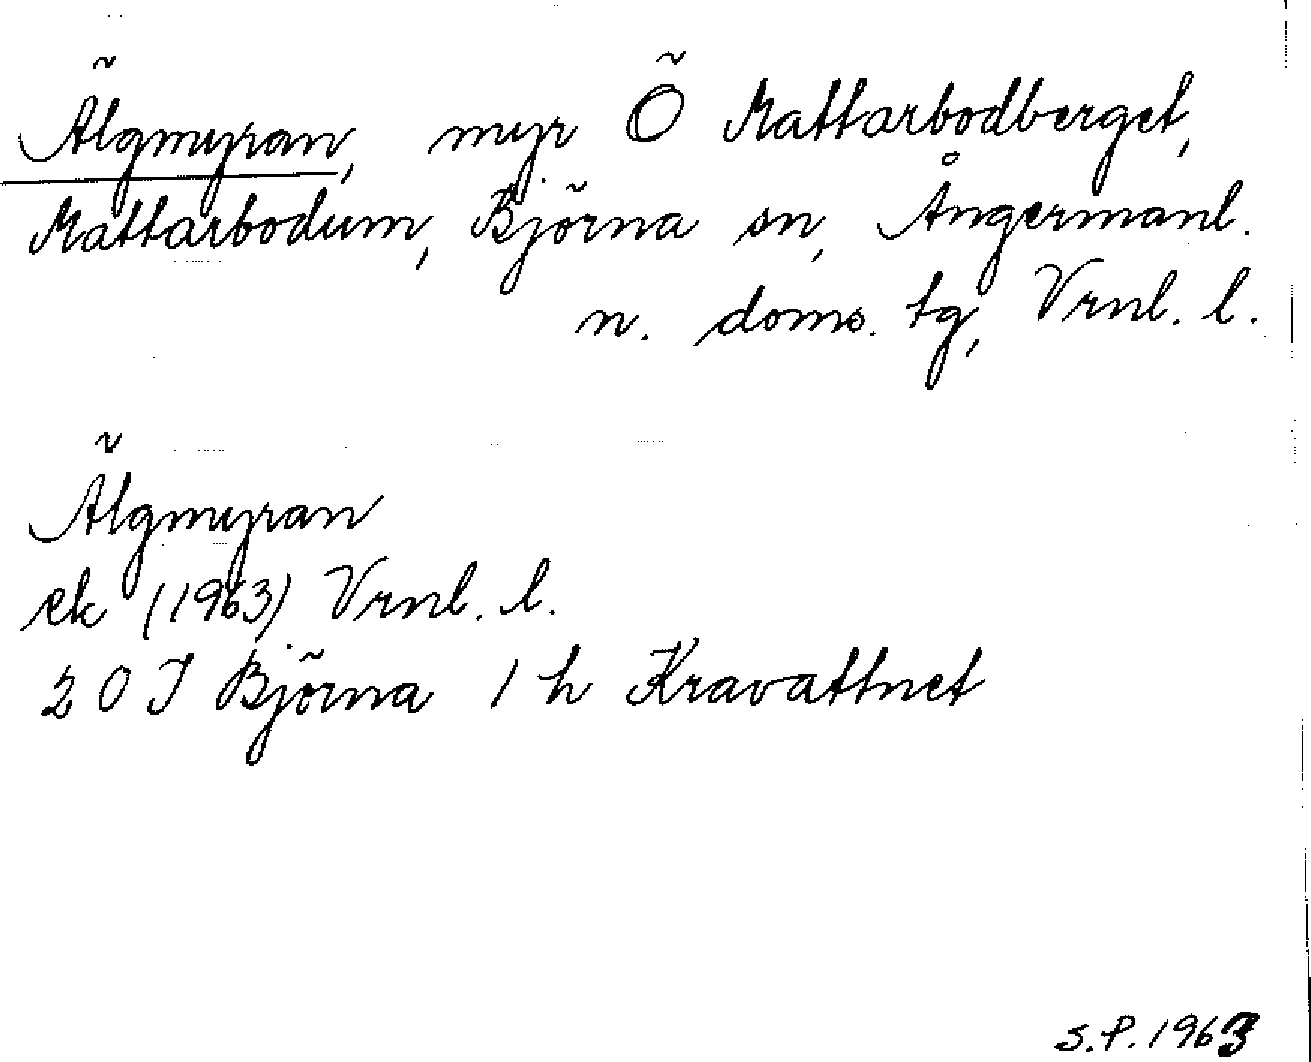 Älgmyran, myr Ö Mattarbodberget,
Mattarbodum, Björna sn, Ångermanl.
n. doms. tg, Vrnl. l.
Älgmyran
ek (1963) Vrnl. l.
20 I Björna 1 h Kravattnet
S.P. 1963